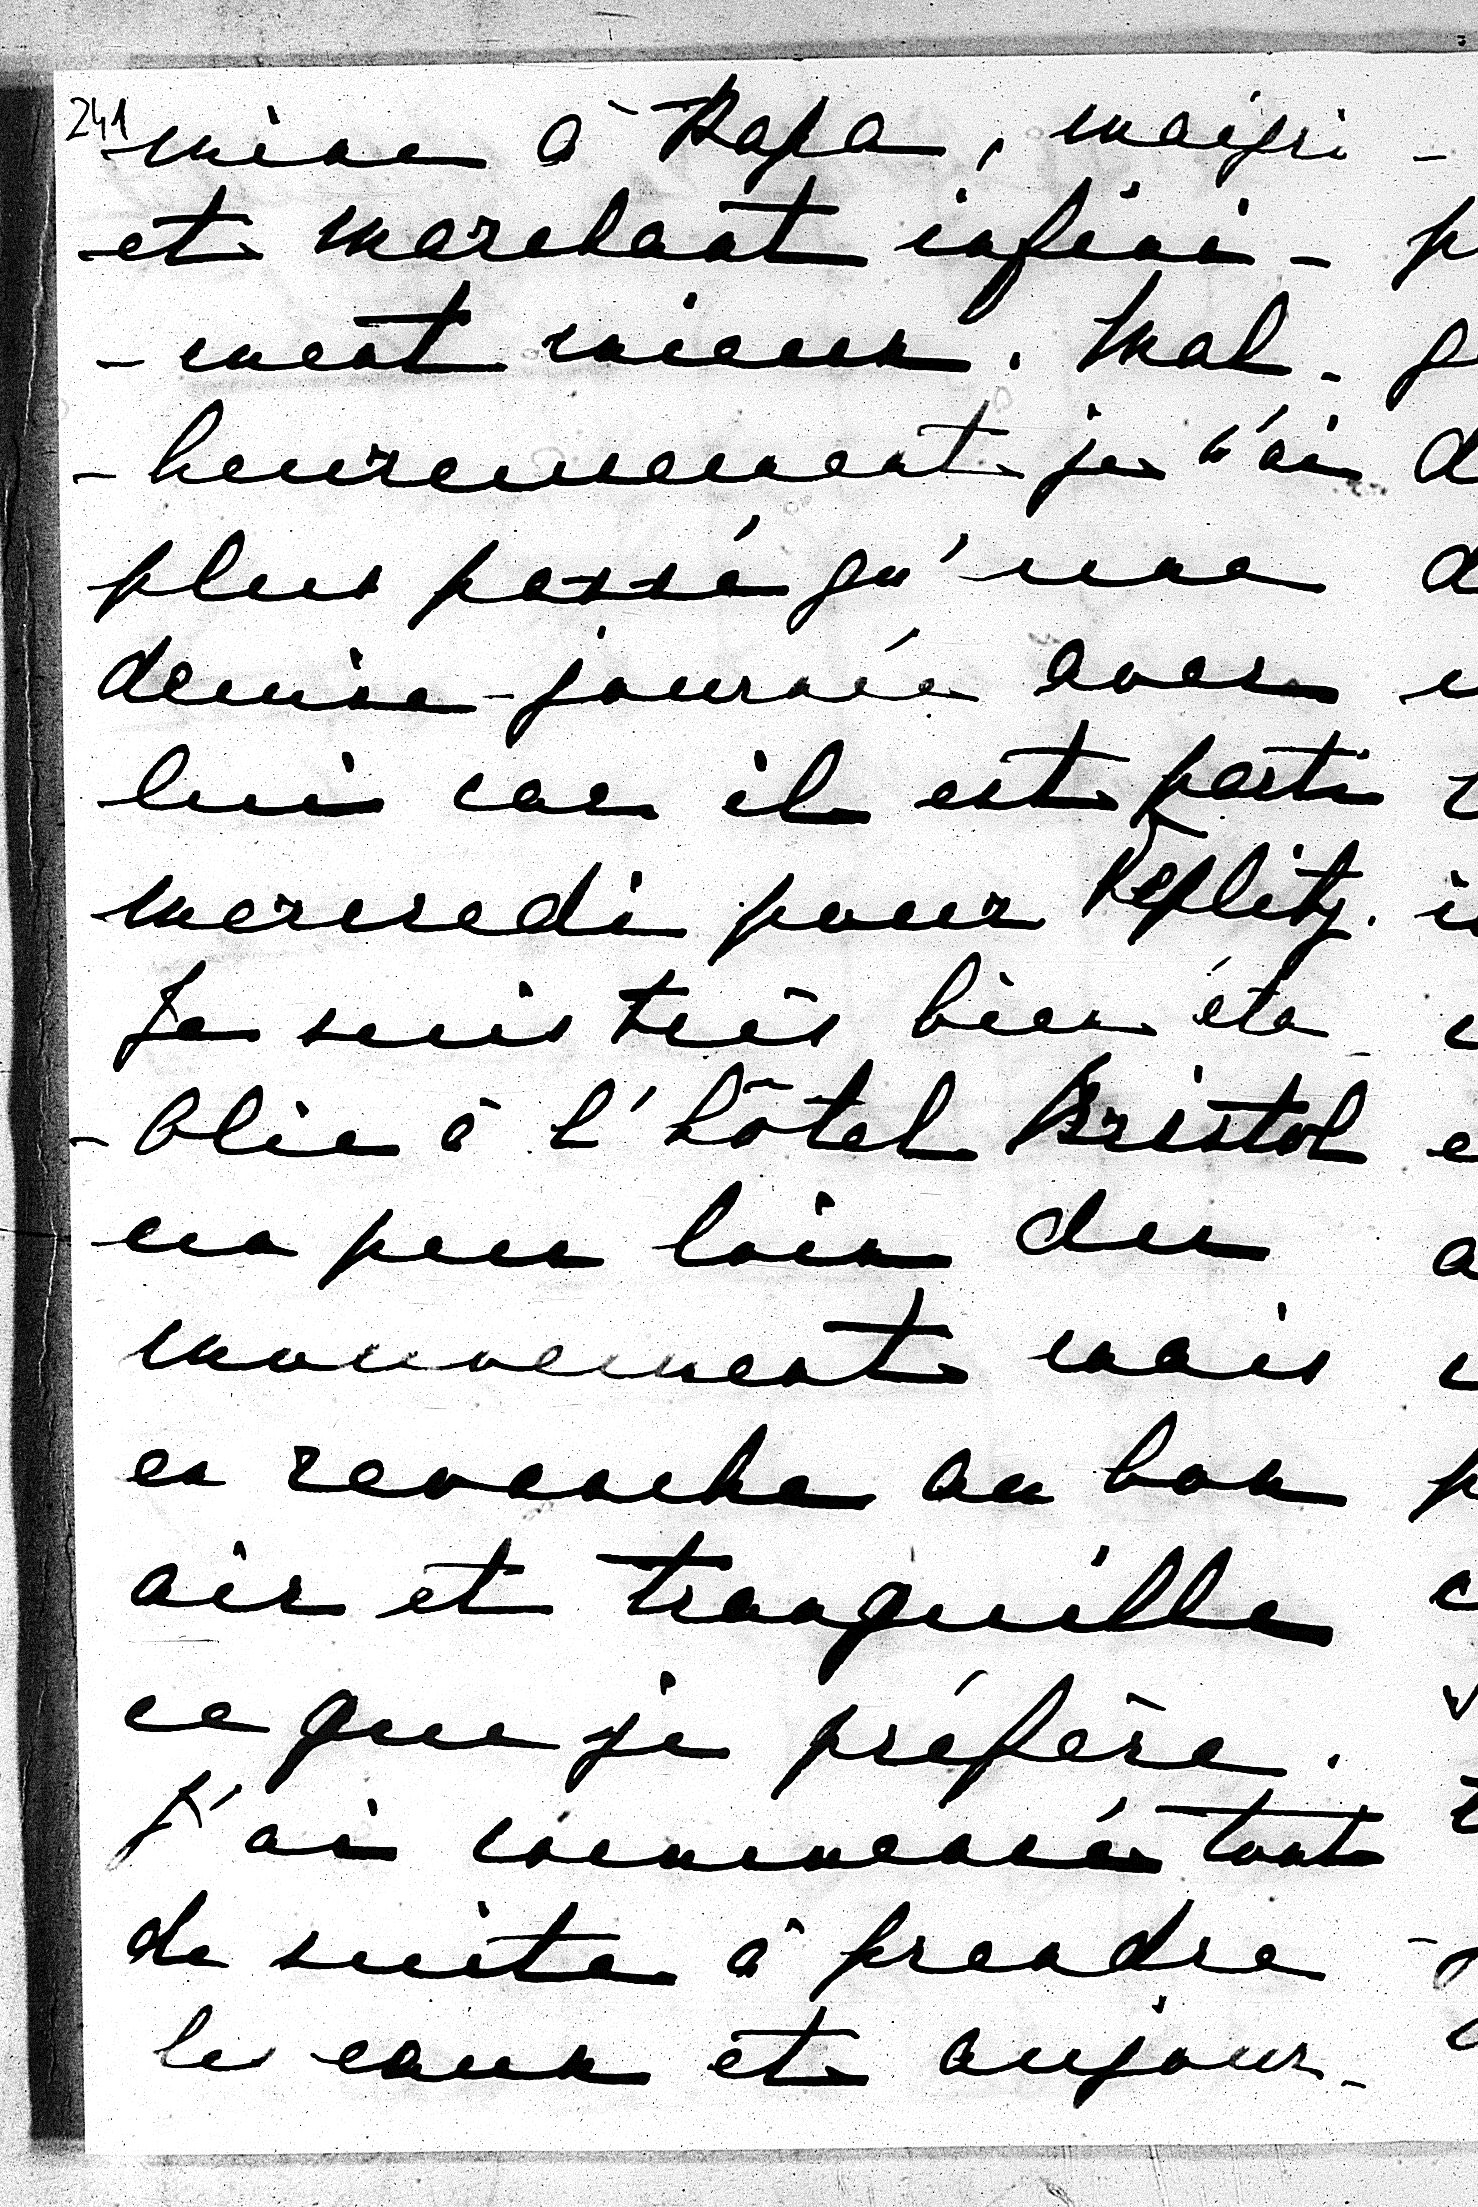 241
mine à Papa, maigri -
et marchant infini -
- ment mieux. Mal -
- heureusement je n'ai
plus passé qu'une
demie - journée avec
lui car il est parti
mercredi pour Teplitz.
Je suis très bien éta -
- blie à l'hôtel Bristol
un peu loin du
mouvement mais
en revanche au bon
air et tranquille
ce que je préfère.
J'ai commencé tout
de suite à prendre
les eaux et aujour -